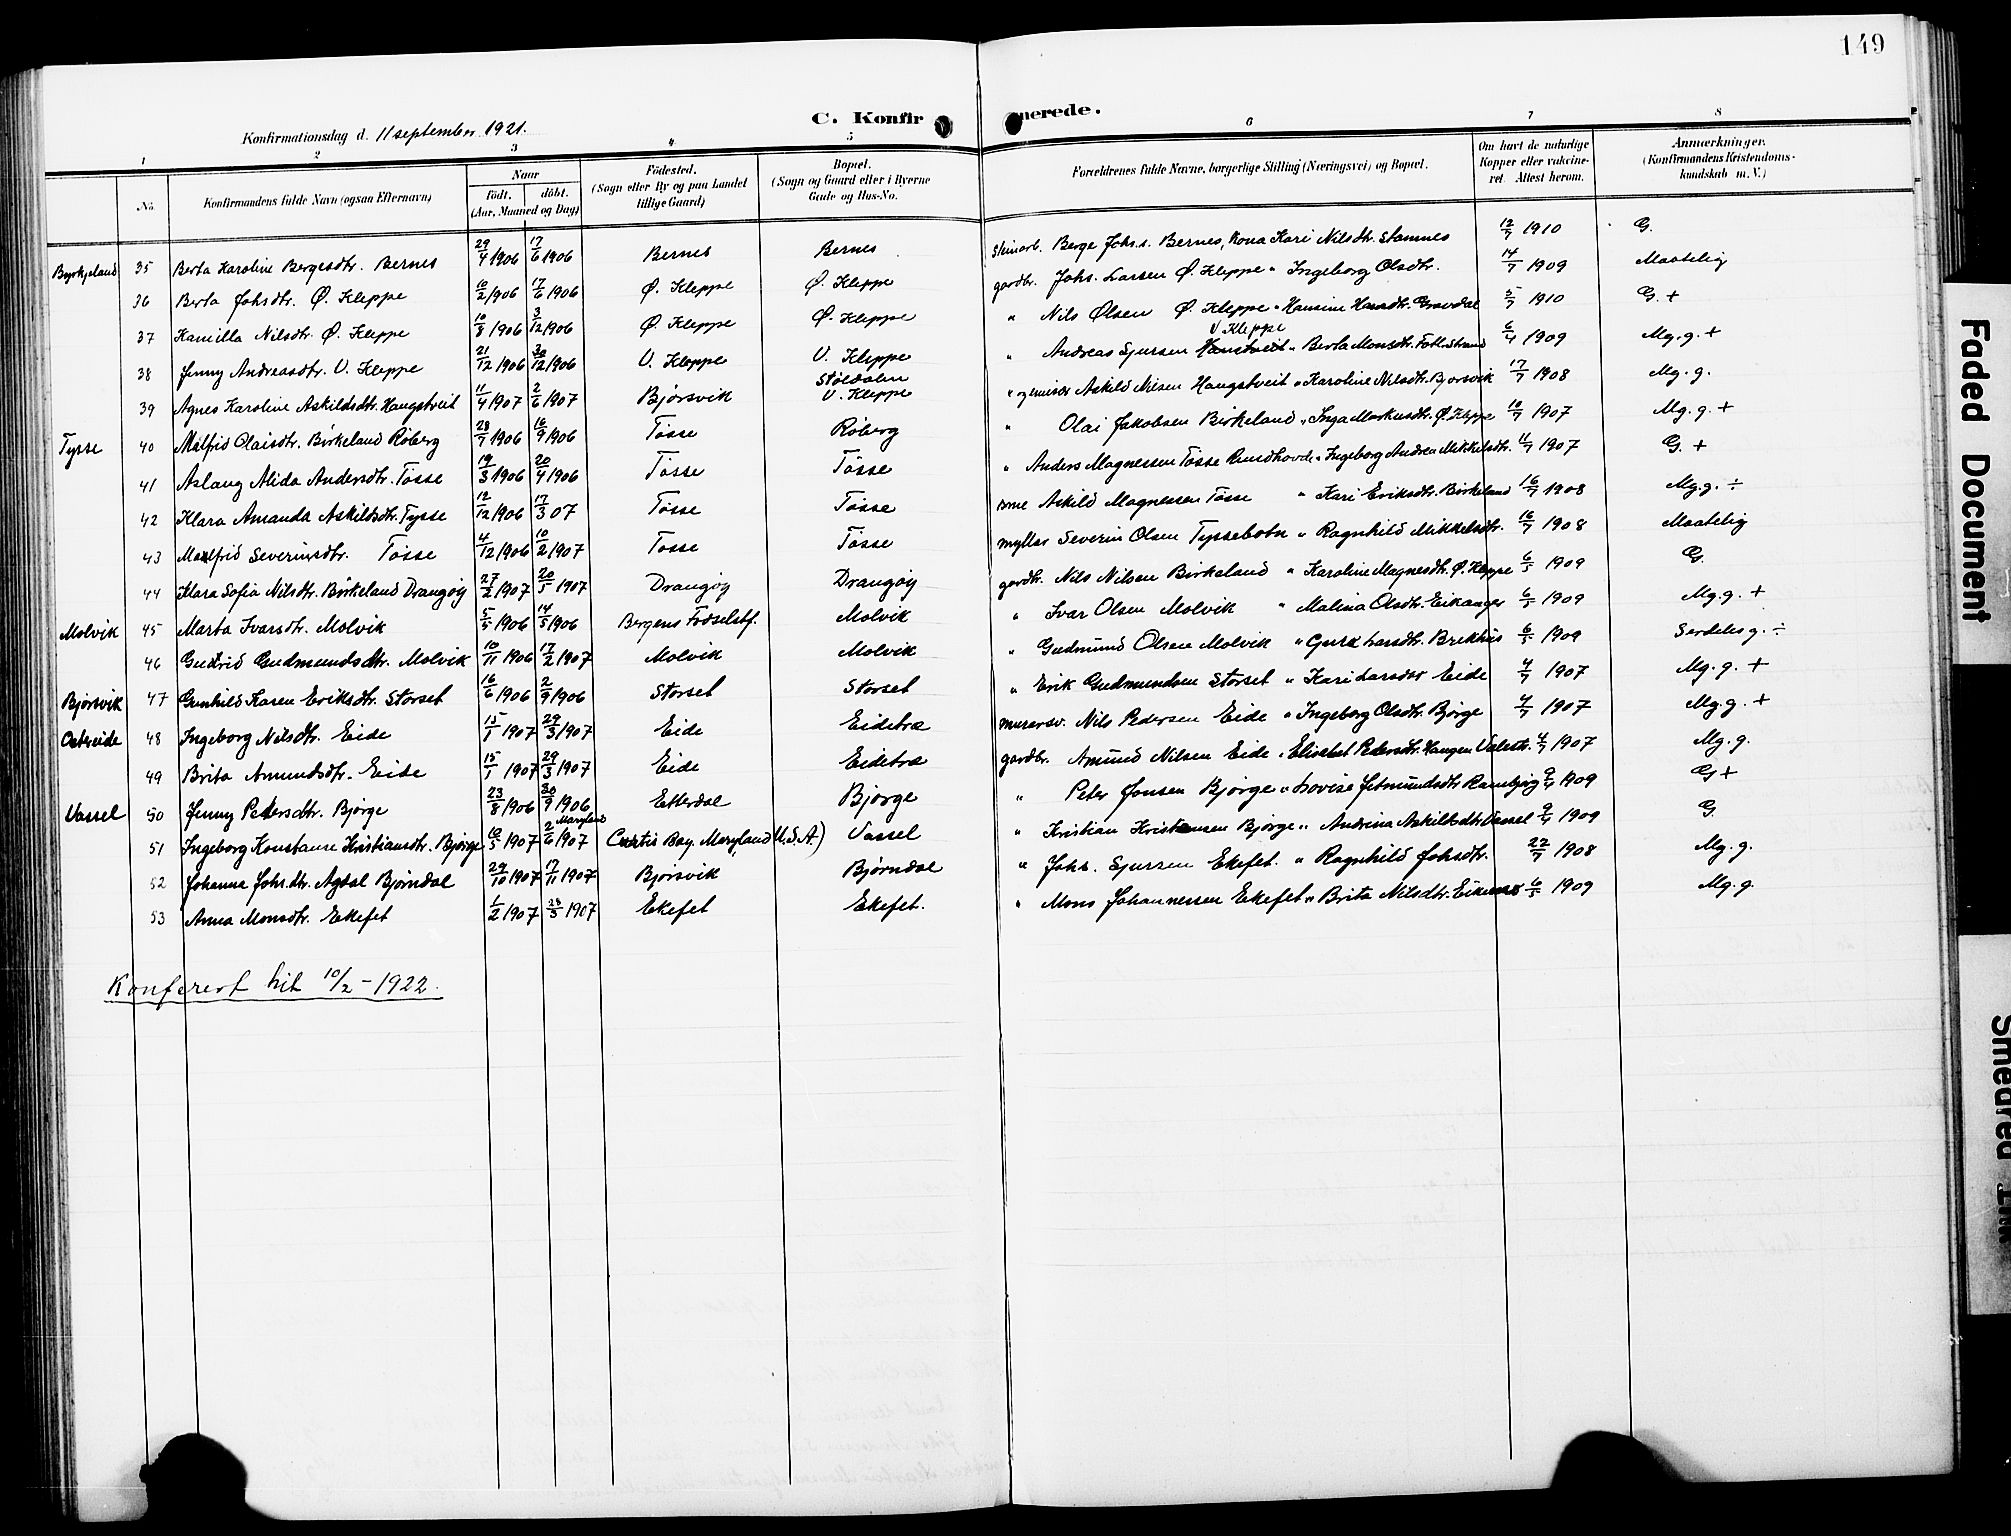 149
C. Konfirmerede.
Konfirmationsdag d. 11 september 1921.
1 2 3 4 5 6 7 8
No. Konfirmandens fulde Navn (ogsaa Efternavn) Naar født, døbt. (Aar, Maaned og Dag) Fødested. (Sogn eller By og paa Landet tillige Gaard) Bopæl. (Sogn og Gaard eller i Byerne Gade og Hus-No. Forældrenes fulde Navne, borgerlige Stilling (Næringsvei) og Bopæl. Om havt de naturlige Kopper eller vaccineret. Attest herom. Anmærkninger. (Konfirmandens Kristendomskundskab m. V.)
Byrkjeland 35 Berta Karoline Bergesdtr. Bernes 29/4 1906 17/6 1906 Bernes Bernes Steinarb. Berge Johs.s. Bernes, Kona Kari Nilsdtr. Stamnes 12/7 1910 G.
36 Berta Johsdtr. Ø. Kleppe 10/2 1906 17/6 1906 Ø. Kleppe Ø. Kleppe gardbr. Johs. Larsen Ø. Kleppe " Ingeborg Olsdtr. 14/7 1909 Maatelig
37 Kamilla Nilsdtr. Ø. Kleppe 10/8 1906 3/12 1906 Ø. Kleppe Ø. Kleppe " Nils Olsen Ø. Kleppe " Hansine Hansdtr. Gravdal 5/7 1910 G. +
38 Jenny Andreasdtr. V. Kleppe 21/12 1906 30/12 1906 V. Kleppe V. Kleppe " Andreas Sjursen V Kleppe " Berta Monsdtr. Strand 6/4 1909 Mg. g. +
39 Agnes Karoline Askildsdtr. Haugstveit 11/4 1907 2/6 1907 Bjørsvik Støldalen V. Kleppe " Askild Nilsen Haugstveit " Karoline Nilsdtr. Bjørsvik 17/7 1908 Mg. g.
Tysse 40 Malfrid Olaisdtr. Birkeland Røberg 28/7 1906 16/9 1906 Tøsse Røberg " Olai Jakobsen Birkeland " Inga Markusdtr. Ø. Kleppe 10/7 1907 Mg. g. +
41 Aslaug Alida Andersdtr. Tøsse 19/3 1906 20/4 1906 Tøsse Tøsse " Anders Magnessen Tøsse Rundhovde " Ingeborg Andrea Mikkelsdtr. 11/7 1907 G. +
42 Klara Amanda Askildsdtr. Tysse 12/12 1906 17/3 07 Tøsse Tøsse Askild Magnessen Tøsse " Kari Eriksdtr. Birkeland 16/7 1908 Mg. g. ÷
43 Malfrid Severinsdtr. Tøsse 4/12 1906 10/2 1907 Tøsse Tøsse myllar Severin Olsen Tyssebotn " Ragnhild Mikkelsdtr. 16/7 1908 Maatelig
44 Klara Sofia Nilsdtr. Birkeland Drangøy 27/2 1907 20/5 1907 Drangøy Drangøy gardbr. Nils Nilsen Birkeland " Karoline Magnesdtr. Ø. Kleppe 6/5 1909 G.
Molvik 45 Marta Ivarsdtr. Molvik 5/5 1906 14/5 1906 Bergens Fødselstf. Molvik " Ivar Olsen Molvik " Malina Olsdtr. Eikanger 6/5 1909 Mg. g. +
46 Gudrid Gudmundsdtr. Molvik 10/11 1906 17/2 1907 Molvik Molvik " Gudmund Olsen Molvik " Larsdtr. Brekhus 6/5 1909 Serdeles g. ÷
Bjørsvik 47 Gunhild Karen Eriksdtr. Storset 16/6 1906 2/9 1906 Storset Storset " Erik Gudmundsen Storset " Kari Larsdtr Eide 4/7 1907 Mg. g. +
Ostreide 48 Ingeborg Nilsdtr. Eide 15/1 1907 29/3 1907 Eide Eidetræ murersv. Nils Pedersen Eide " Ingeborg Olsdtr. Bjørge 4/7 1907 Mg. g. +
49 Brita Amundsdtr. Eide 15/1 1907 29/3 1907 Eide Eidetræ gardbr. Amund Nilsen Eide " Elisabet Pedersdtr. Haugen 4/7 1907 Mg. g.
Vassel 50 Jenny Petersdtr. Bjørge 23/8 1906 30/9 1906 Etterdal Bjørge " Peter Jonsen Bjørge " Lovise 9/4 1909 G +
51 Ingeborg Konstanse Kristiansdtr. Bjørge 10/5 1907 2/6 1907 Maryland Curtis Bay. Maryland U.S.A.) Vassel " Kristian Kristensen Bjørge " Andrina Askildsdtr. Vassel 9/4 1909 G.
52 Johanna Johs.dtr. Agdal Bjørndal 29/10 1907 17/11 1907 Bjørsvik Bjørndal " Johs. Sjursen Ekefet. " Ragnhild Johsdtr. 22/7 1908 Mg. g.
53 Anna Monsdtr. Ekefet 1/2 1907 28/3 1907 Ekefet Ekefet. " Mons Johannessen Ekefet " Brita Nilsdtr. 6/5 1909 Mg. g.
Konferert hit 10/2 - 1922.
Faded Document
Smeared Ink